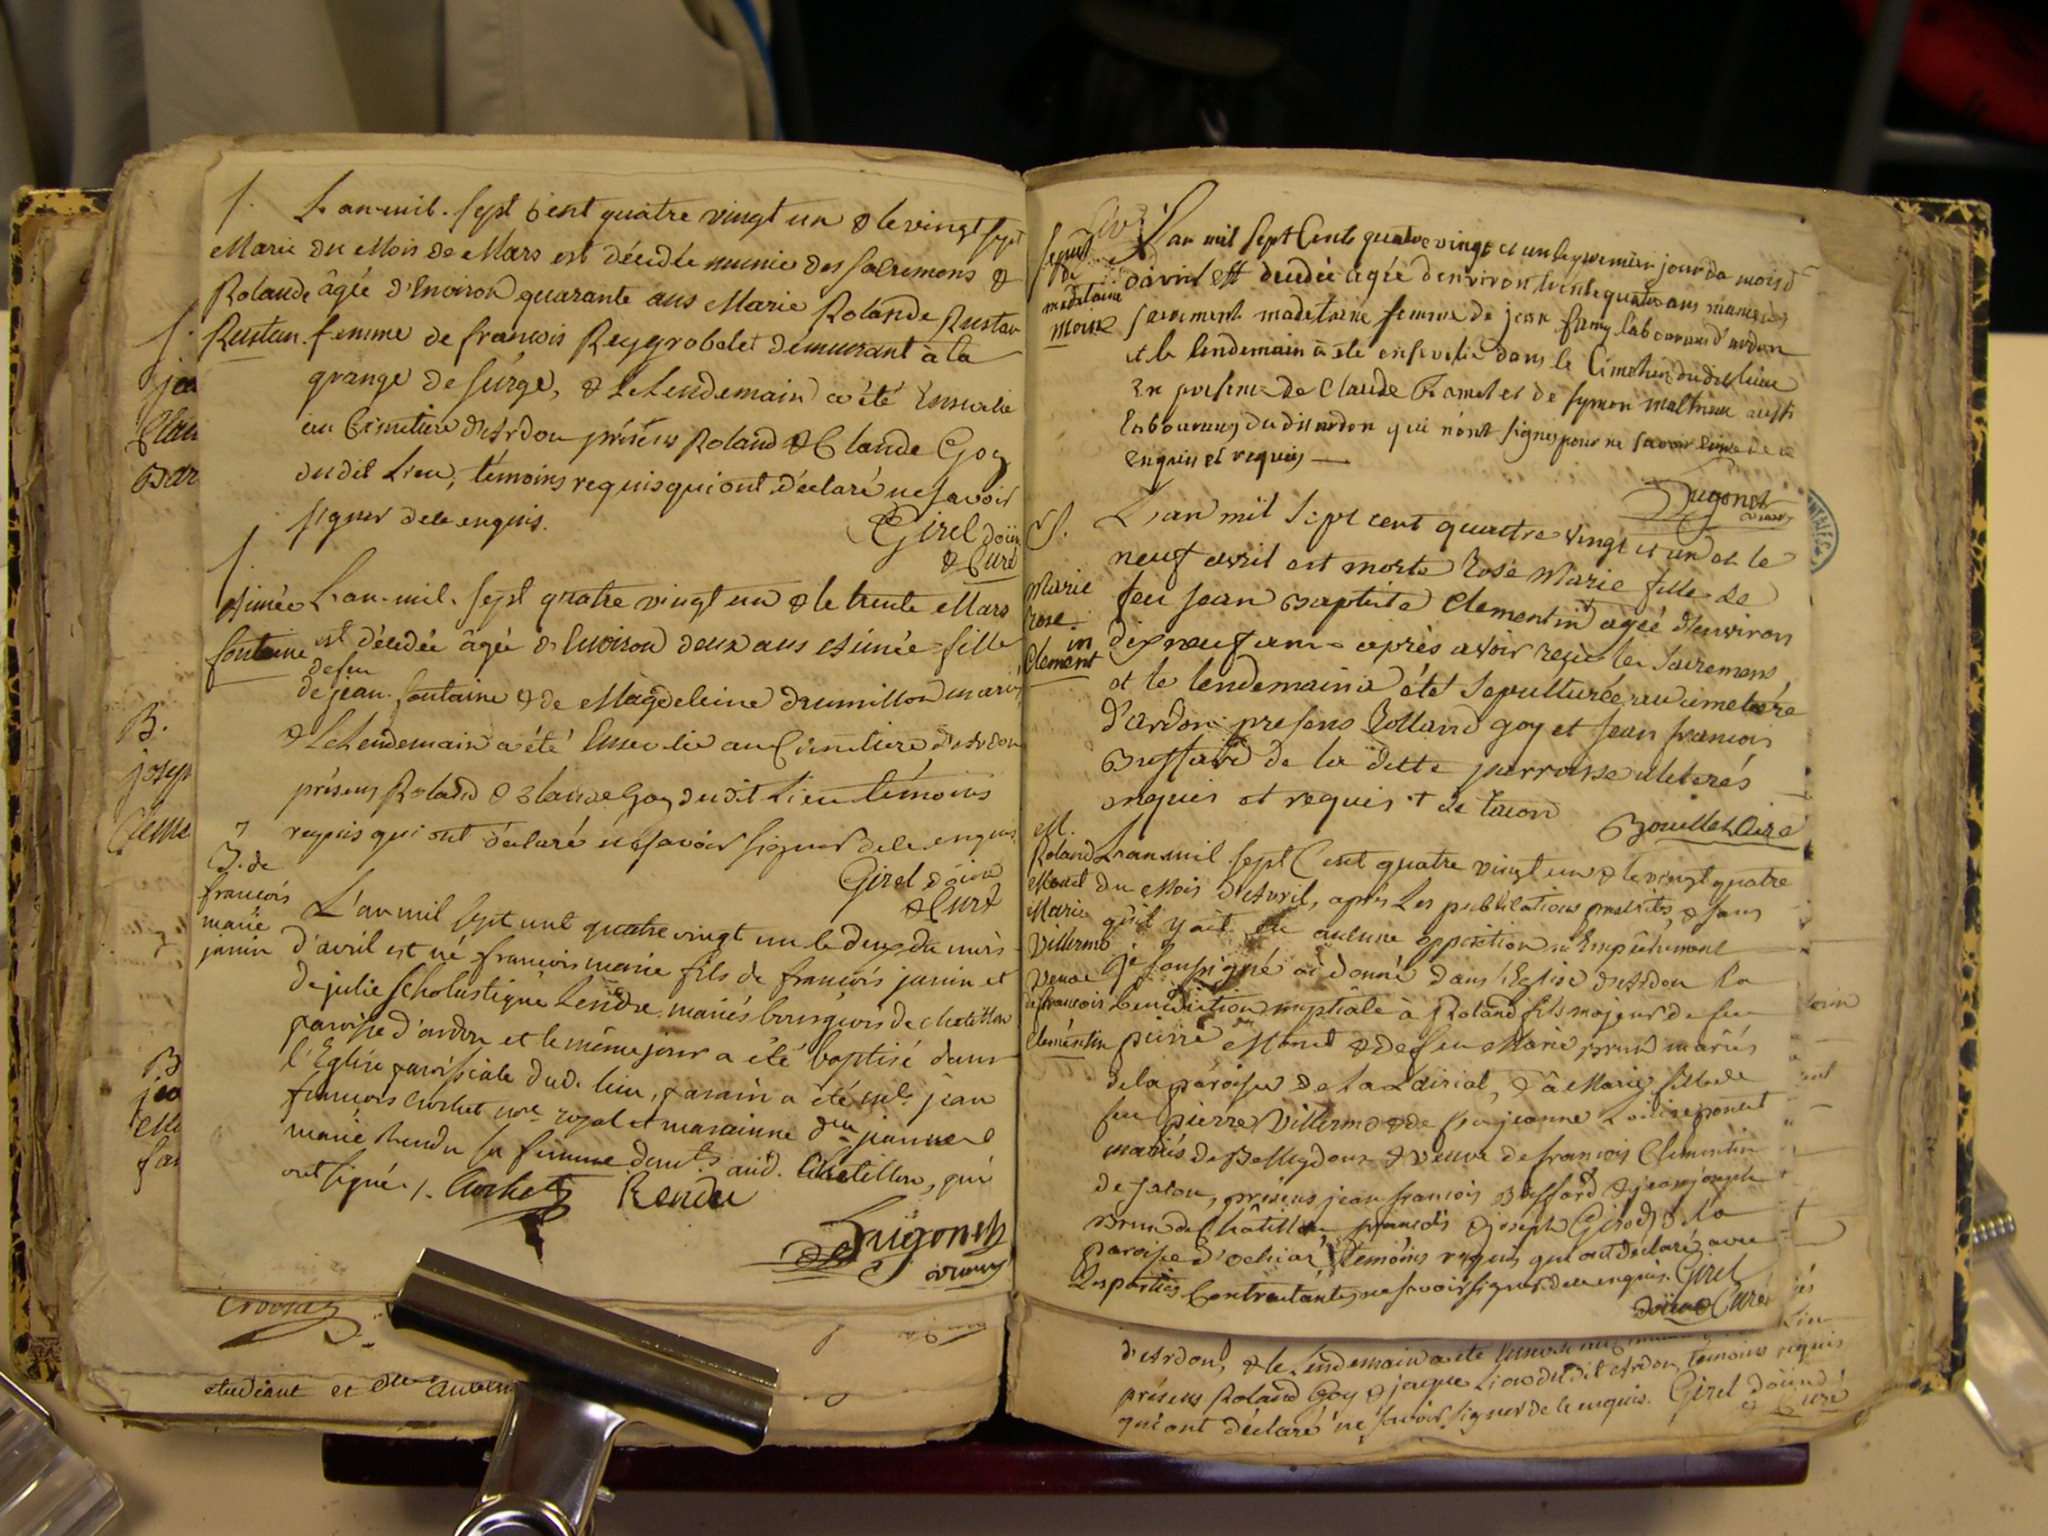 S. L'an mil sept Cent quatre vingt un & le vingt sept
Marie du Mois de Mars est décédée munie des sacremens &
Rolande âgée d'Environ quarante ans Marie Rolande Rustan
Rustan femme de françois Reygrobelet demeurant à la
grange de surge, & Le Lendemain a été Ensevelie
au Cimetiere d'Ardon présens Roland & Claude Goy
dudit Lieu, témoins requis qui ont déclaré ne savoir
signer de ce enquis.
Girel doïen
& Curé
S.
Aimée L'an mil sept quatre vingt un & le trente Mars
fontaine est décédée âgée d'Environ deux ans Aimée fille
defeu
de jean fontaine & de Magdeleine Dumillon mariés
& Le Lendemain a été Ensevelie au Cimetiere d'Ardon
présens Roland & Claude Goy dudit Lieu témoins
requis qui ont déclaré ne savoir signer de ce enquis
Girel doïen
& Curé
B. de
françois
marie
janin
L'an mil sept cent quatre vingt un le deux du mois
d'avril est né françois marie fils de françois janin et
de julie Scholastique Rendu mariés bourgeois de chatillon
paroisse d'ardon et le même jour a été baptisé dans
l'Eglise paroissiale dud. lieu, parain a été me. jean
françois Crochet nre. royal et marainne dlle jeanne
marie Rendu sa femme dmts. aud. Chatillon, qui
ont signé. Rendu
Dugonet
vicaire
sepult
de
madelaine
moine
L'an mil sept Cents quatre vingt et un le premier jour du mois d
d'avril est decedée agée d'environ trente quatre ans munie des
sacrement madelaine femme de jean famy laboureur d'ardon
et le lendemain à été ensevelie dans le Cimetiere dudit lieu
En presence de Claude et de symon aussi
laboureurs dudit ardon qui n'ont signes pour ne savoir de ce
enquis et requis
Dugonet
vicaire
S.
Marie
rose
Clement
in
L'an mil sept cent quattre vingt et un et le
neuf avril est morte Rose Marie fille de
feu Jean Baptiste Clementin agée d'environ
dix neuf ans après avoir reçu les sacremens
et le lendemain a été sepulturée au cimetiere
d'ardon presens Rolland goy et Jean francois
Buffard de la ditte parroisse illeterés
enquis et requis
Bouillet vicre
M.
Roland
Monet
Marie
Villermo
Veuve
de francois
Clémentin
L'an mil sept Cent quatre vingt un & le vingt quatre
du Mois d'Avril, après Les publications prescrites, & sans
qu'il y ait eu aucune opposition ni Empêchement
je soussigné ai donné dans l'Eglise d'Ardon la
benediction nuptiale à Roland fils majeur de feu
pierre Monet & de feu Marie Brun mariés
de la paroisse de La Lairiat, & à Marie fille de
feu pierre Villermo & de feu jeanne
mariés de Bellegdoux & veuve de francois Clementin
de Jalon, présens jean francois Buffard & jean joseph
Brun de Châtillon francois & joseph Girod de la
paroisse d'ochiaz témoins requis qui ont déclaré avec
Les parties Contractantes ne savoir signer de ce enquis. Girel
doïen & Curé
d'Ardon, & le Lendemain a été
présens Roland Goy & jaque dudit Ardon témoins requis
qui ont déclaré ne savoir signer de ce enquis. Girel doïen
& Curé
etudiant et dlle